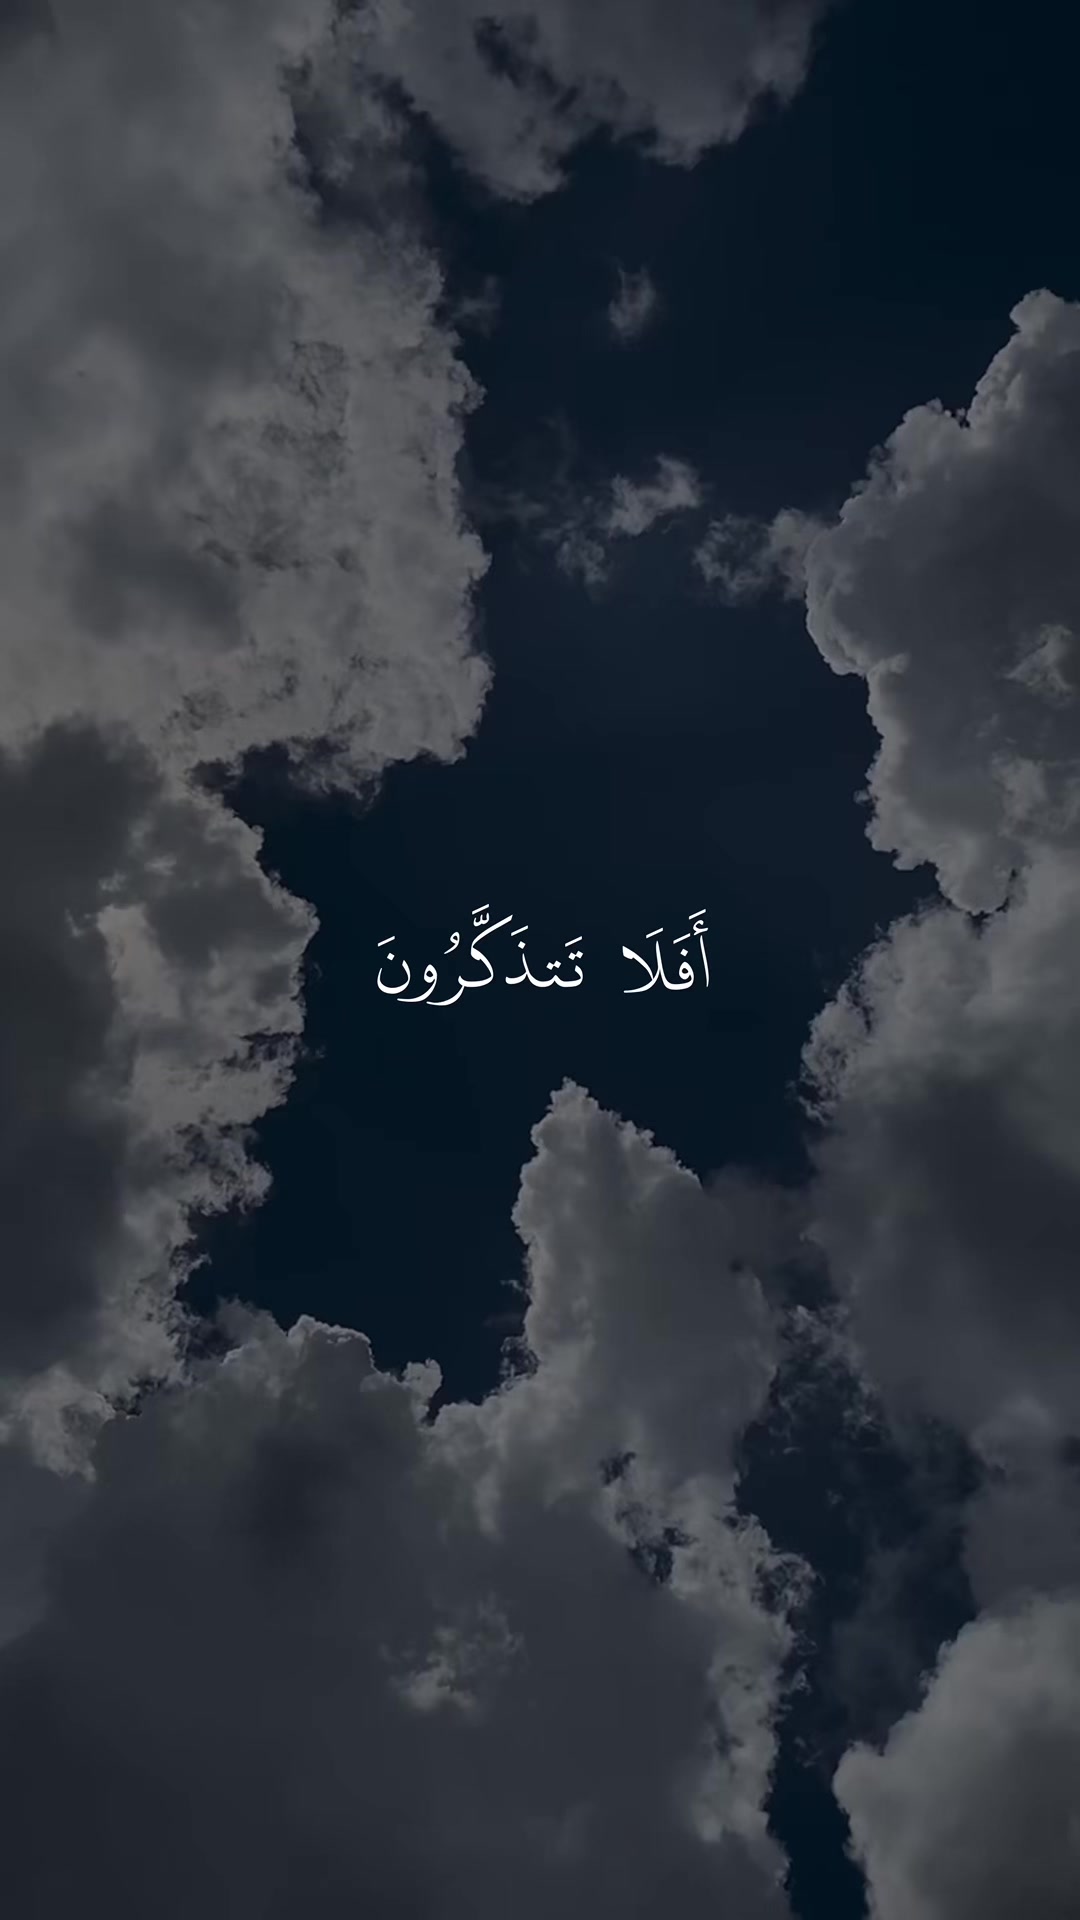 أَفَلَا تَتَذَكَّرُونَ